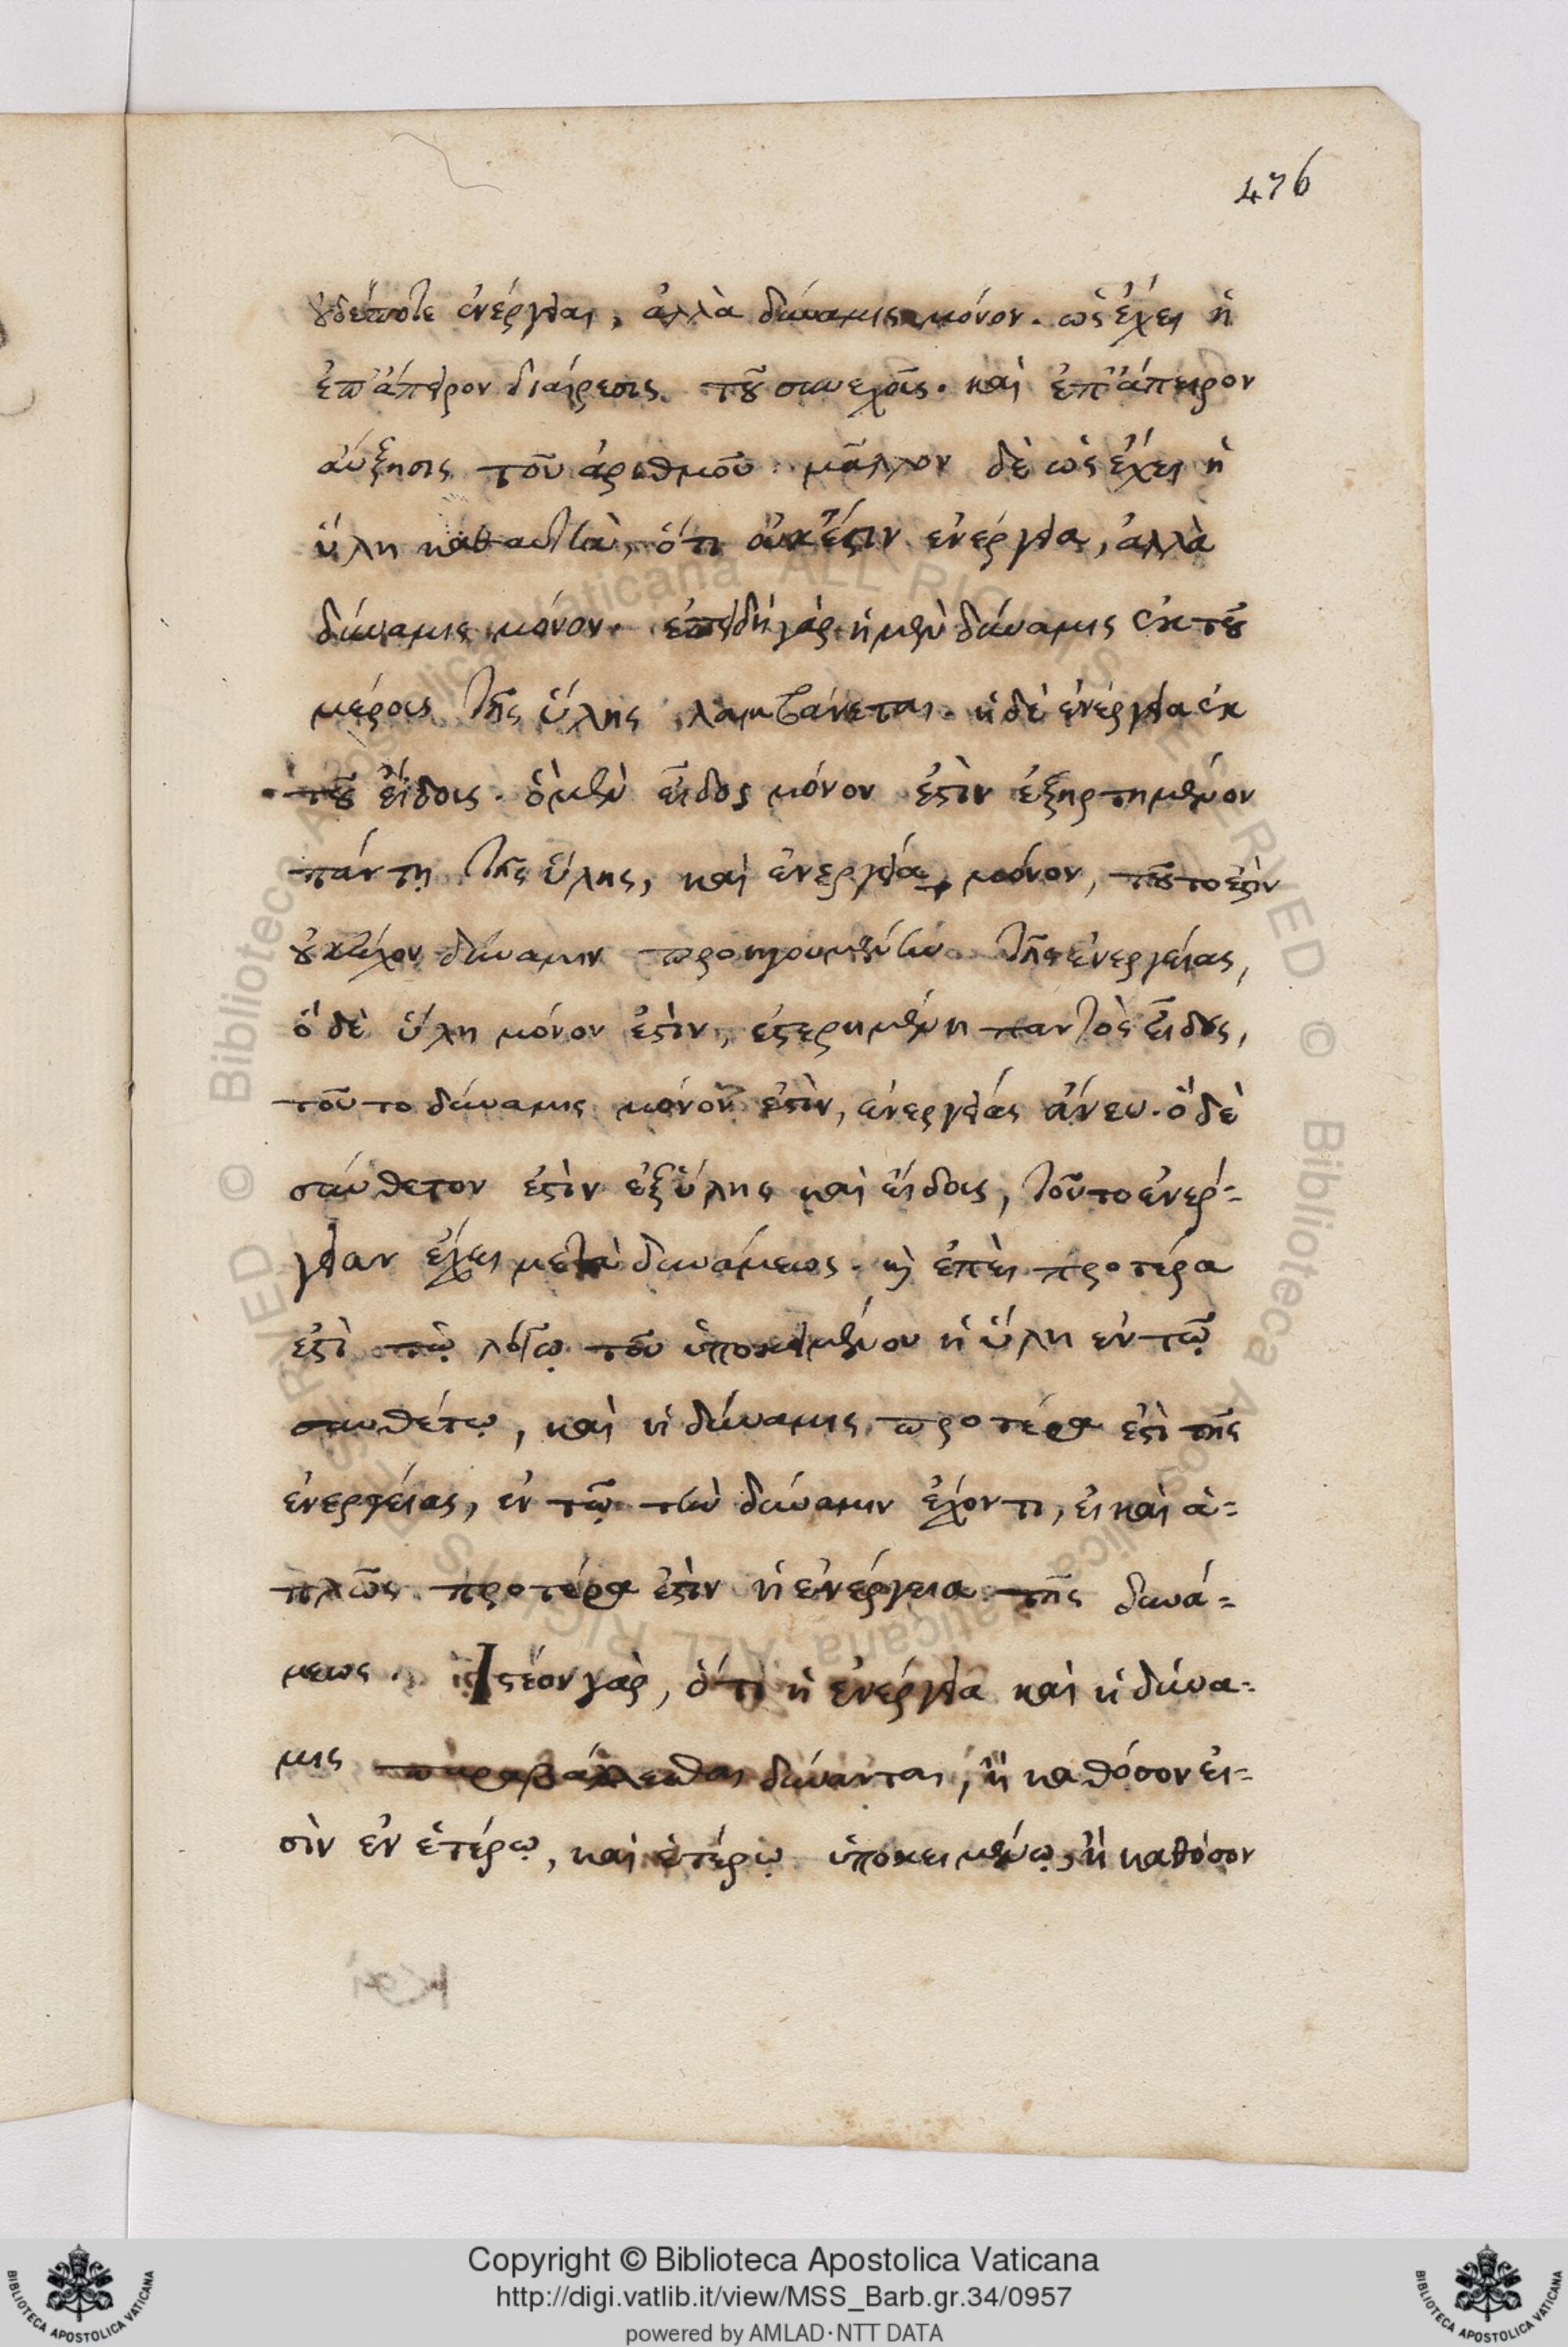 476
οὐδέποτε ἐνέργειαι, ἀλλὰ δύναμις μόνον. ὡς ἔχει ἡ
ἐπ' ἄπειρον διαίρεσις τοῦ συνεχοῦς. καὶ ἐπ' ἄπειρον
αὔξησις τοῦ ἀριθμοῦ. μᾶλλον δὲ ὡς ἔχει ἡ
ὕλη καθ' αὑτὴν, ὅτι οὐκ ἔστιν ἐνέργεια, ἀλλὰ
δύναμις μόνον. ἐπειδὴ γὰρ ἡ μὲν δύναμις ἐκ τοῦ
μέρους τῆς ὕλης λαμβάνεται. ἡ δὲ ἐνέργεια ἐκ
τοῦ εἴδους. ὃ μὲν εἶδος μόνον ἐστὶν ἐξῃρτημένον
πάντῃ τῆς ὕλης, καὶ ἐνέργεια μόνον, τοῦτο ἐστὶν
οὐκ ἔχον δύναμιν προηγουμένην τῆς ἐνεργείας,
ὃ δὲ ὕλη μόνον ἐστὶν, ἐστερημένη παντὸς εἴδους,
τοῦτο δύναμις μόνον ἐστὶν, ἐνεργείας ἄνευ. ὃ δὲ
σύνθετον ἐστὶν ἐξ ὕλης καὶ εἴδους, τοῦτο ἐνέρ=
γειαν ἔχει μετὰ δυνάμεως. καὶ ἐπεὶ προτέρα
ἐστὶ τῷ λόγῳ τοῦ ὑποκειμένου ἡ ὕλη ἐν τῷ
συνθέτῳ, καὶ ἡ δύναμις προτέρα ἐστὶ τῆς
ἐνεργείας, ἐν τῷ τὴν δύναμιν ἔχοντι, εἰ καὶ ἁ=
πλῶς προτέρα ἐστὶν ἡ ἐνέργεια τῆς δυνά=
μεως. Ἰστέον γὰρ, ὅτι ἡ ἐνέργεια καὶ ἡ δύνα=
μις παραβάλλεσθαι δύνανται, ἢ καθόσον εἰ=
σὶν ἐν ἑτέρῳ, καὶ ἑτέρῳ ὑποκειμένῳ, ἢ καθόσον
Copyright © Biblioteca Apostolica Vaticana
http://digi.vatlib.it/view/MSS_Barb.gr.34/0957
powered by AMLAD·NTT DATA